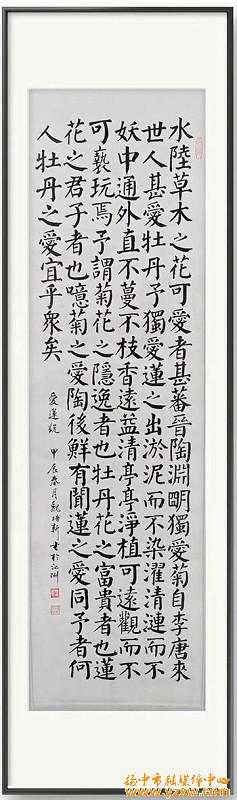 水陸草木之花可愛者甚蕃晉陶淵眀獨愛菊自李唐來
世人甚愛牡丹予獨愛蓮之出淤泥而不染濯清漣而不
妖中通外直不蔓不枝香遠益清亭亭淨植可遠觀而不
可褻玩焉予謂菊花之隱逸者也牡丹花之富貴者也蓮
花之君子者也噫菊之愛陶後鮮有聞蓮之愛同予者何
人牡丹之愛宜乎衆矣
愛蓮說 甲辰春月魏培新書於江洲
扬中市融媒体中心
www.yzxw.com